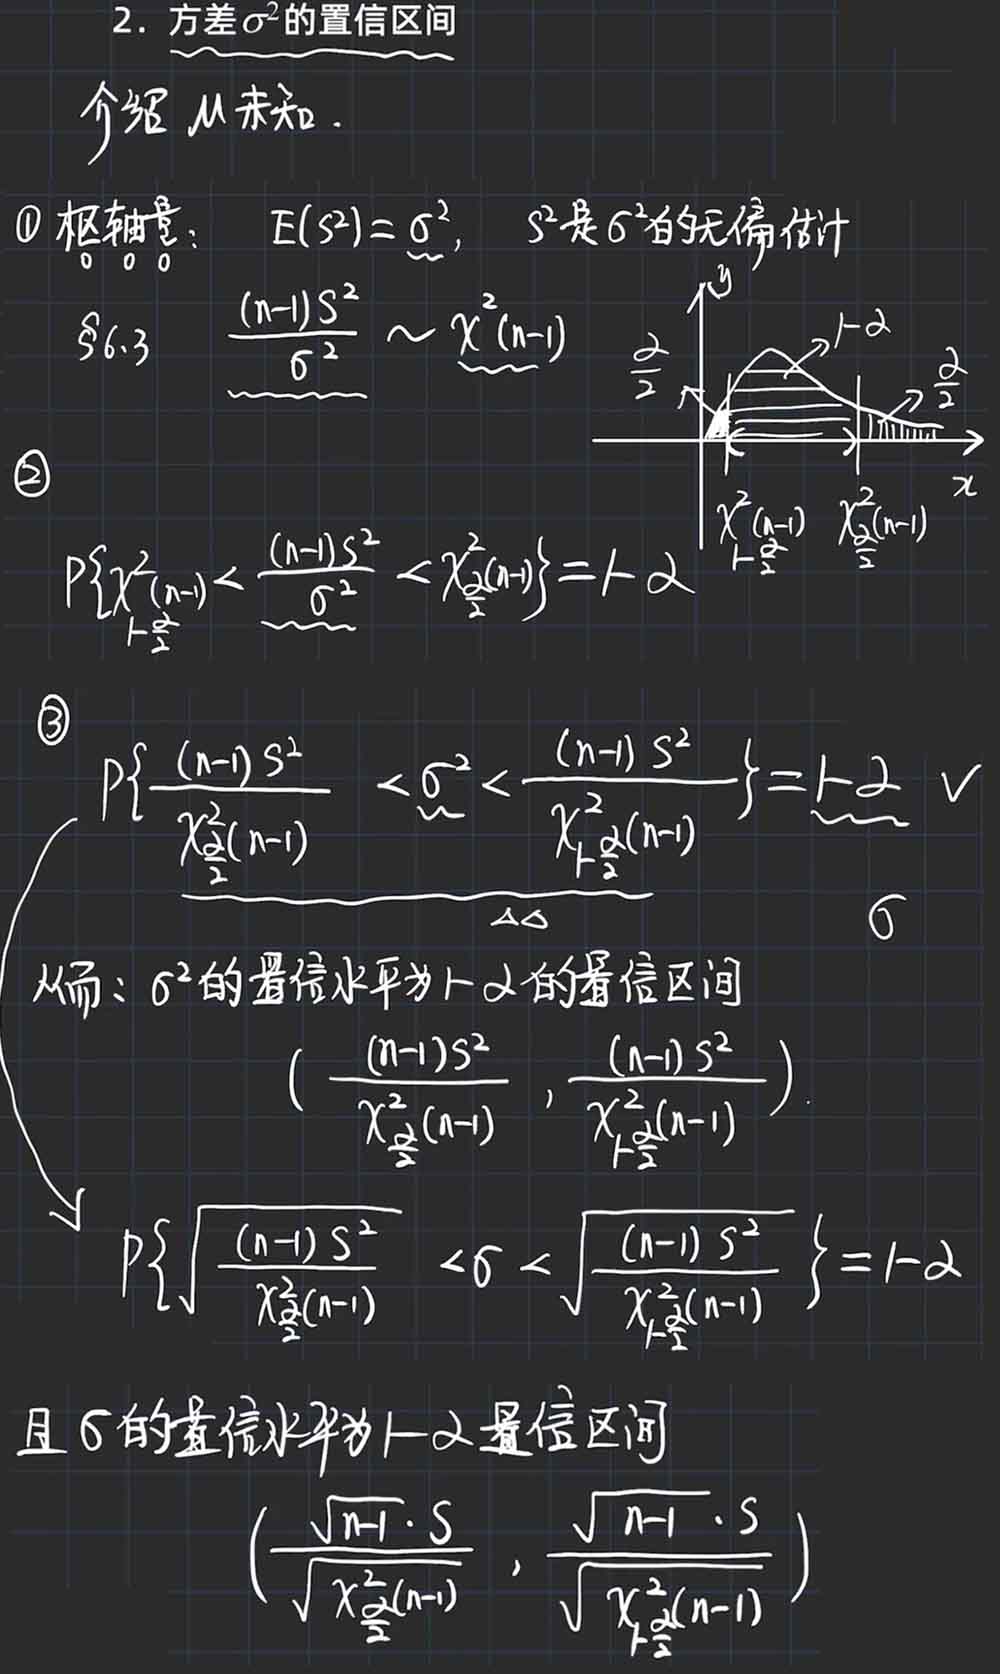 2. 方差σ²的置信区间
介绍 μ未知.
① 枢轴量: E(S²)=σ², S²是σ²的无偏估计
§6.3 (n-1)S²/σ² ~ χ²(n-1)
y
α/2 1-α α/2
x
χ²_{1-α/2}(n-1) χ²_{α/2}(n-1)
②
P{χ²_{1-α/2}(n-1) < (n-1)S²/σ² < χ²_{α/2}(n-1)} = 1-α
③
P{(n-1)S²/χ²_{α/2}(n-1) < σ² < (n-1)S²/χ²_{1-α/2}(n-1)} = 1-α ✓
△△ σ
从而: σ²的置信水平为1-α的置信区间
((n-1)S²/χ²_{α/2}(n-1), (n-1)S²/χ²_{1-α/2}(n-1)).
P{√((n-1)S²/χ²_{α/2}(n-1)) < σ < √((n-1)S²/χ²_{1-α/2}(n-1))} = 1-α
且σ的置信水平为1-α置信区间
(√(n-1)·S/√(χ²_{α/2}(n-1)), √(n-1)·S/√(χ²_{1-α/2}(n-1)))